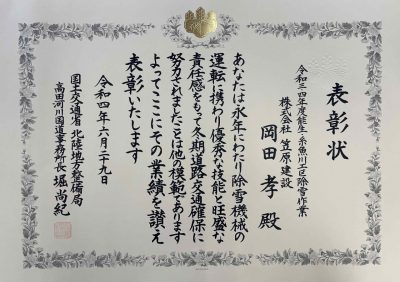 表彰状
令和三・四年度能生・糸魚川工区除雪作業
株式会社 笠原建設
岡田 孝 殿
あなたは永年にわたり除雪機械の
運転に携わり優秀な技能と旺盛な
責任感をもって冬期道路交通確保に
努力されましたことは他の模範であります
よってここにその業績を讃え
表彰いたします
令和四年六月二十九日
国土交通省 北陸地方整備局
高田河川国道事務所長 堀 尚紀